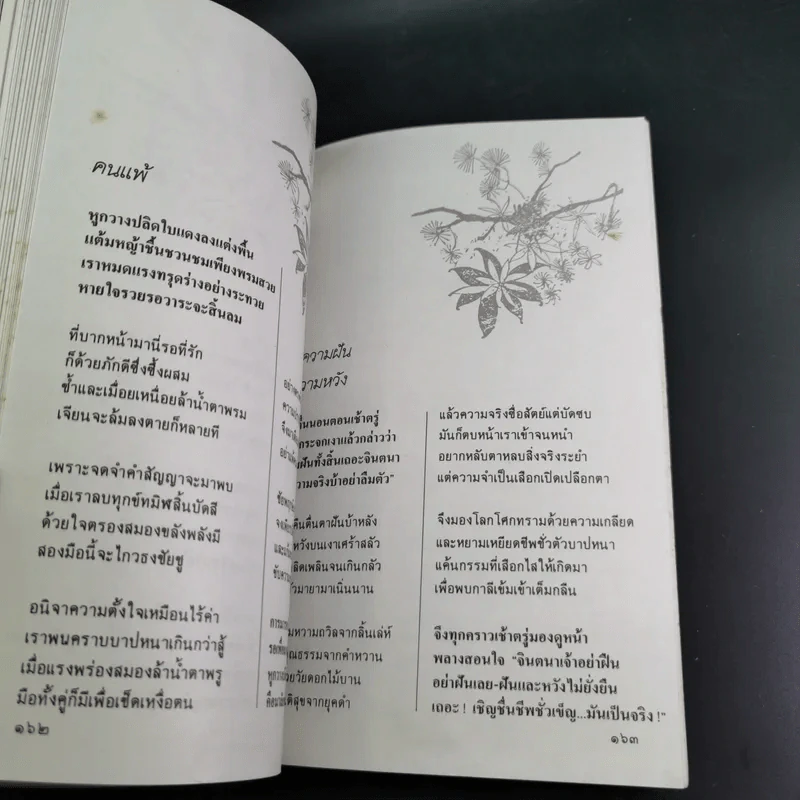 คนแพ้
หูกวางปลิดใบแดงลงแต่งพื้น
แต้มหญ้าชื้นชวนชมเพียงพรมสวย
เราหมดแรงทรุดร่างอย่างระทวย
หายใจรวยรอวาระจะสิ้นลม
ที่บากหน้ามานี่รอที่รัก
ก็ด้วยภักดีซึ่งซึ้งผสม
ช้ำและเมื่อยเหนื่อยล้าน้ำตาพรม
เจียนจะล้มลงตายก็หลายที
เพราะจดจำคำสัญญาจะมาพบ
เมื่อเราลบทุกข์ทมิฬสิ้นบัดสี
ด้วยใจตรองสมองขลังพลังมี
สองมือนี้จะไกวธงชัยชู
อนิจาความตั้งใจเหมือนไร้ค่า
เราพนคราบบาปหนาเกินกว่าสู้
เมื่อแรงพร่องสมองล้าน้ำตาพรู
มือทั้งคู่ก็มีเพื่อเช็ดเหงื่อตน
๑๖๒
ความฝัน
วามหวัง
นนอนตอนเช้าตรู่
กระจกเงาแล้วกล่าวว่า
ฝันทั้งสิ้นเถอะจินตนา
วามจริงบ้าอย่าลืมตา”
คืนตื่นตาฝันบ้าหลัง
หวังบนเงาเศร้าสลัว
ลิดเพลินจนเกินกลัว
ัวมายามาเนิ่นนาน
มหวามถวิลจากลิ้นเล่ห์
ณธรรมจากคำหวาน
วยวัยดอกไม้บาน
ดิสุขจากยุคดำ
แล้วความจริงซื่อสัตย์แต่บัดซบ
มันก็ตบหน้าเราเข้าจนหนำ
อยากหลับตาหลบสิ่งจริงระยำ
แต่ความจำเป็นเลือกเปิดเปลือกตา
จึงมองโลกโศกทรามด้วยความเกลียด
และหยามเหยียดชีพชั่วตัวบาปหนา
แค้นกรรมที่เลือกไสให้เกิดมา
เพื่อพบกาลีเข้มเข้าเต็มกลืน
จึงทุกคราวเช้าตรู่มองดูหน้า
พลางสอนใจ “จินตนาเจ้าอย่าฝืน
อย่าฝันเลย-ฝันและหวังไม่ยั่งยืน
เถอะ ! เชิญชื่นชีพชั่วเข็ญ...มันเป็นจริง !”
๑๖๓